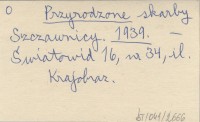 O Przyrodzone skarby
Szczawnicy. 1939. —
Światowid 16, nr 34, il.
Krajobraz.